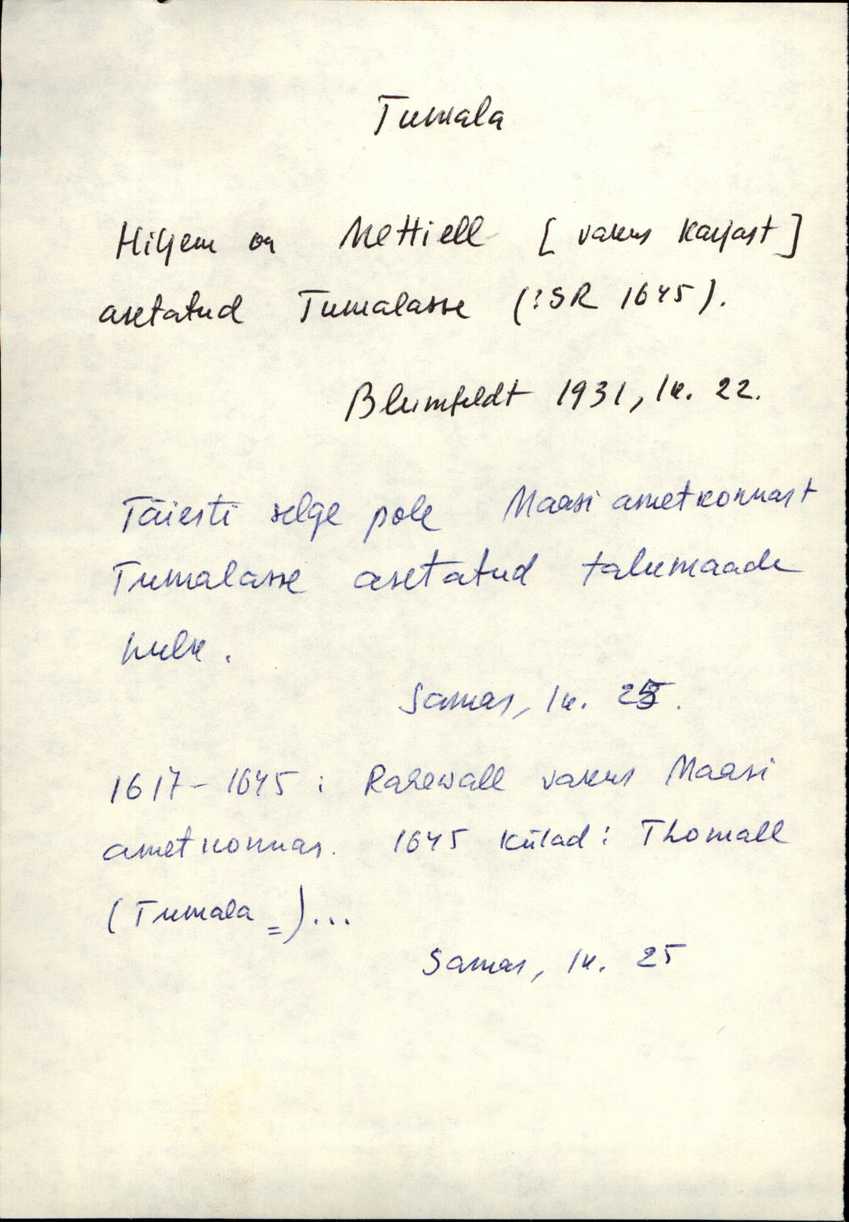 Tumala
Hiljem on Mettiell [vakus Karjast]
asetatud Tumalasse (:SR 1645).
Blumfeldt 1931, lk. 22.
Täiesti selge pole Maasi ametkonnast
Tumalasse asetatud talumaade
hulk.
Samas, lk. 25.
1617-1645: Rahewall vakus Maasi
ametkonnas. 1645 külad: Thomall
(Tumala =)...
Samas, lk. 25